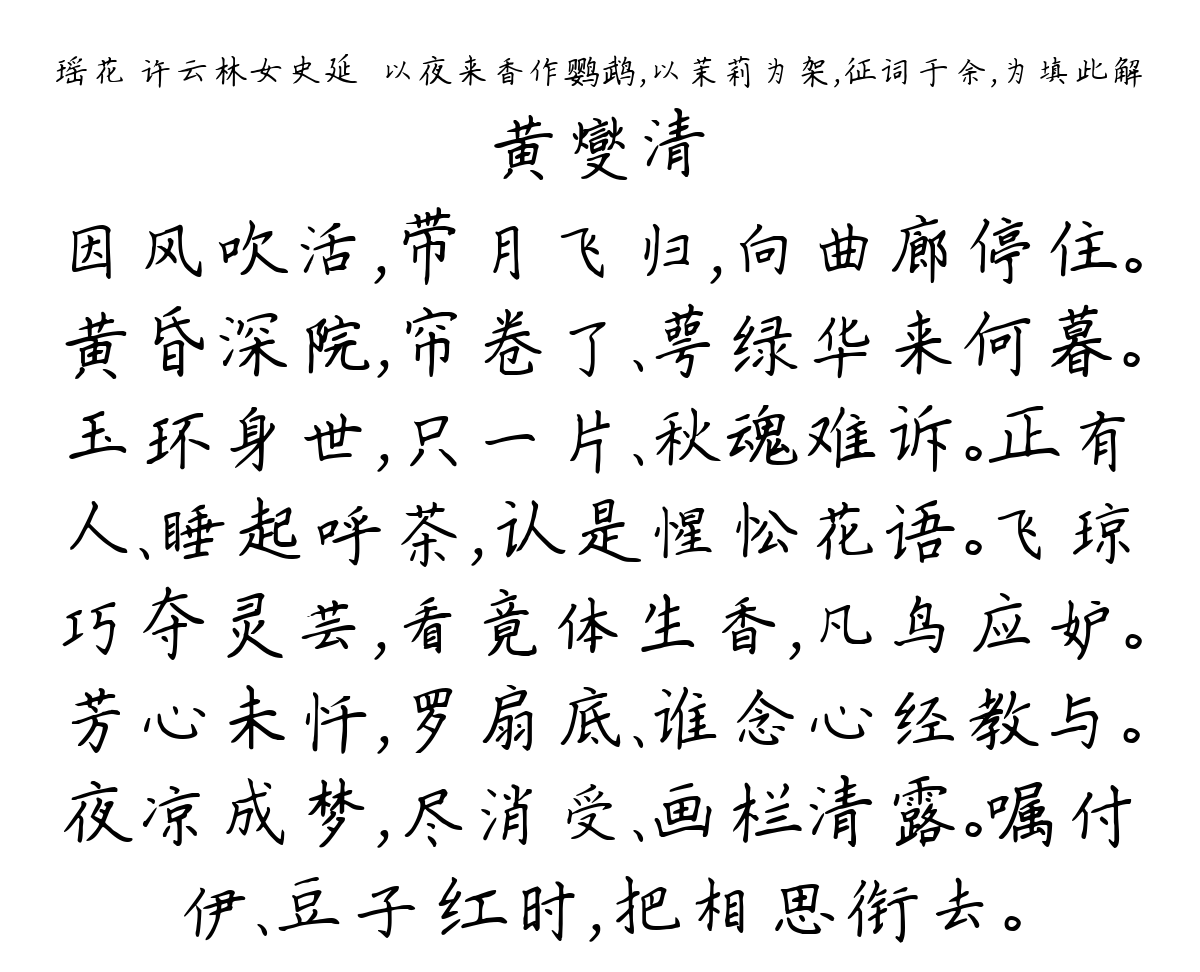 瑶花 许云林女史延 以夜来香作鹦鹉,以茉莉为架,征词于余,为填此解
黄燮清
因风吹活,带月飞归,向曲廊停住。
黄昏深院,帘卷了、萼绿华来何暮。
玉环身世,只一片、秋魂难诉。正有
人、睡起呼茶,认是惺忪花语。飞琼
巧夺灵芸,看竟体生香,凡鸟应妒。
芳心未忏,罗扇底、谁念心经教与。
夜凉成梦,尽消受、画栏清露。嘱付
伊、豆子红时,把相思衔去。